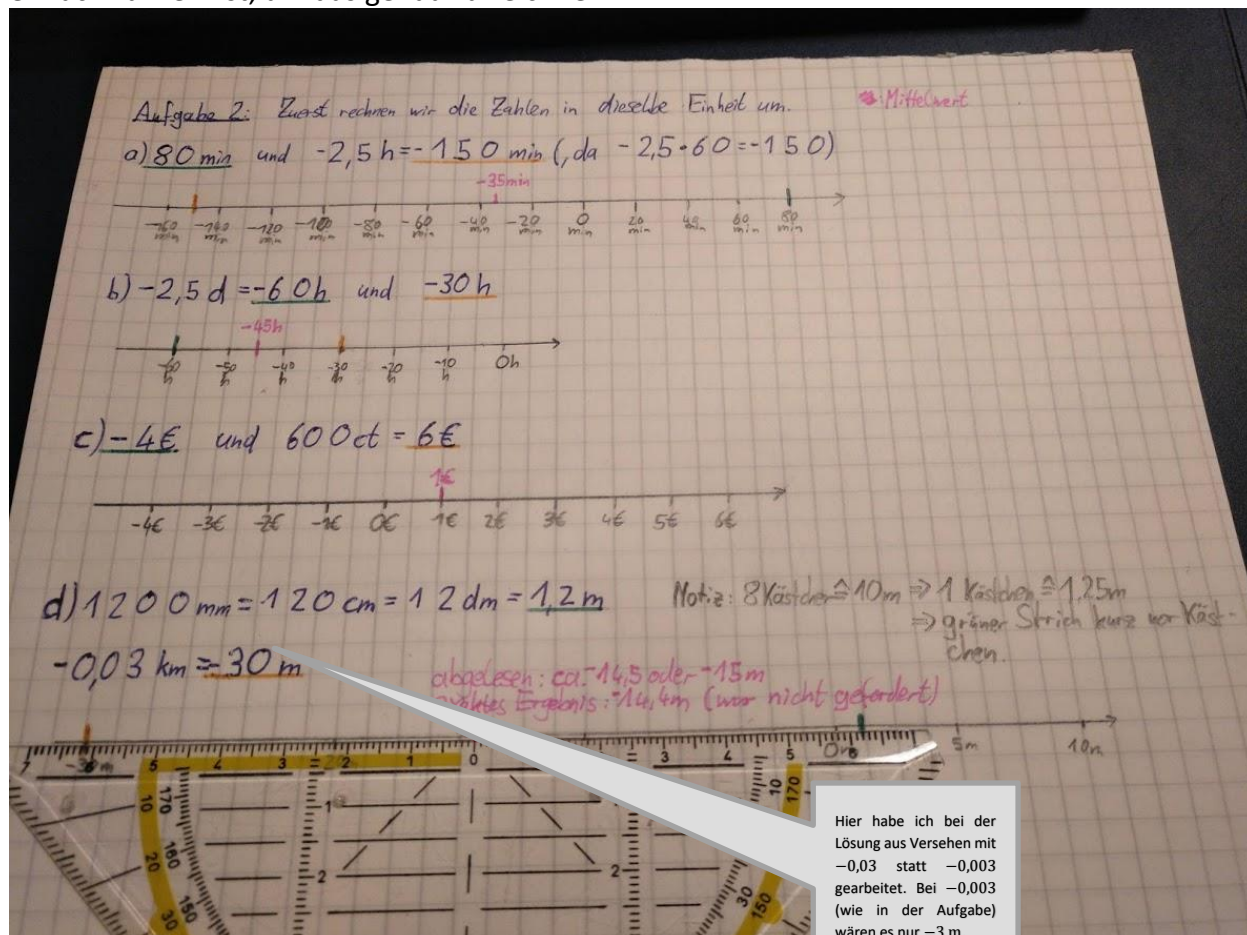 Aufgabe 2: Zuerst rechnen wir die Zahlen in dieselbe Einheit um.
: Mittelwert
a) 80 min und -2,5 h = -150 min (, da -2,5·60 = -150)
-35min
-160 min -140 min -120 min -100 min -80 min -60 min -40 min -20 min 0 min 20 min 40 min 60 min 80 min
b) -2,5 d = -60h und -30 h
-45h
-60 h -50 h -40 h -30 h -20 h -10 h 0h
c) -4€ und 600ct = 6€
1€
-4€ -3€ -2€ -1€ 0€ 1€ 2€ 3€ 4€ 5€ 6€
d) 1200 mm = 120 cm = 12 dm = 1,2 m
Notiz: 8 Kästchen ≙ 10m ⇒ 1 Kästchen ≙ 1,25m
⇒ grüner Strich kurz vor Käst-
chen.
-0,03 km = -30 m
abgelesen: ca. -14,5 oder -15m
Ergebnis: -14,4m (war nicht gefordert)
-30m 0m 5m 10m
7 6 5 4 3 2 1 0 3 4 5 6
10 170 1 10 170
20 160 2 2
30 150 30 150
Hier habe ich bei der
Lösung aus Versehen mit
−0,03 statt −0,003
gearbeitet. Bei −0,003
(wie in der Aufgabe)
wären es nur −3 m